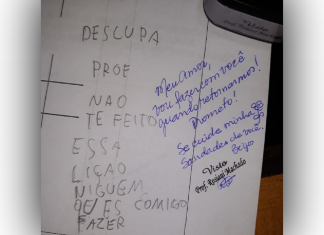 DESCUPA
PROE
NAO
TE FEITO
ESSA
LIÇAO
NIGUEM
COMIGO
FAZER
Meu Amor,
vou fazer com você
quando retornarmos!
Prometo!
Se cuide minha
Saudades de você.
Beijo
Visto
Prof. Machado